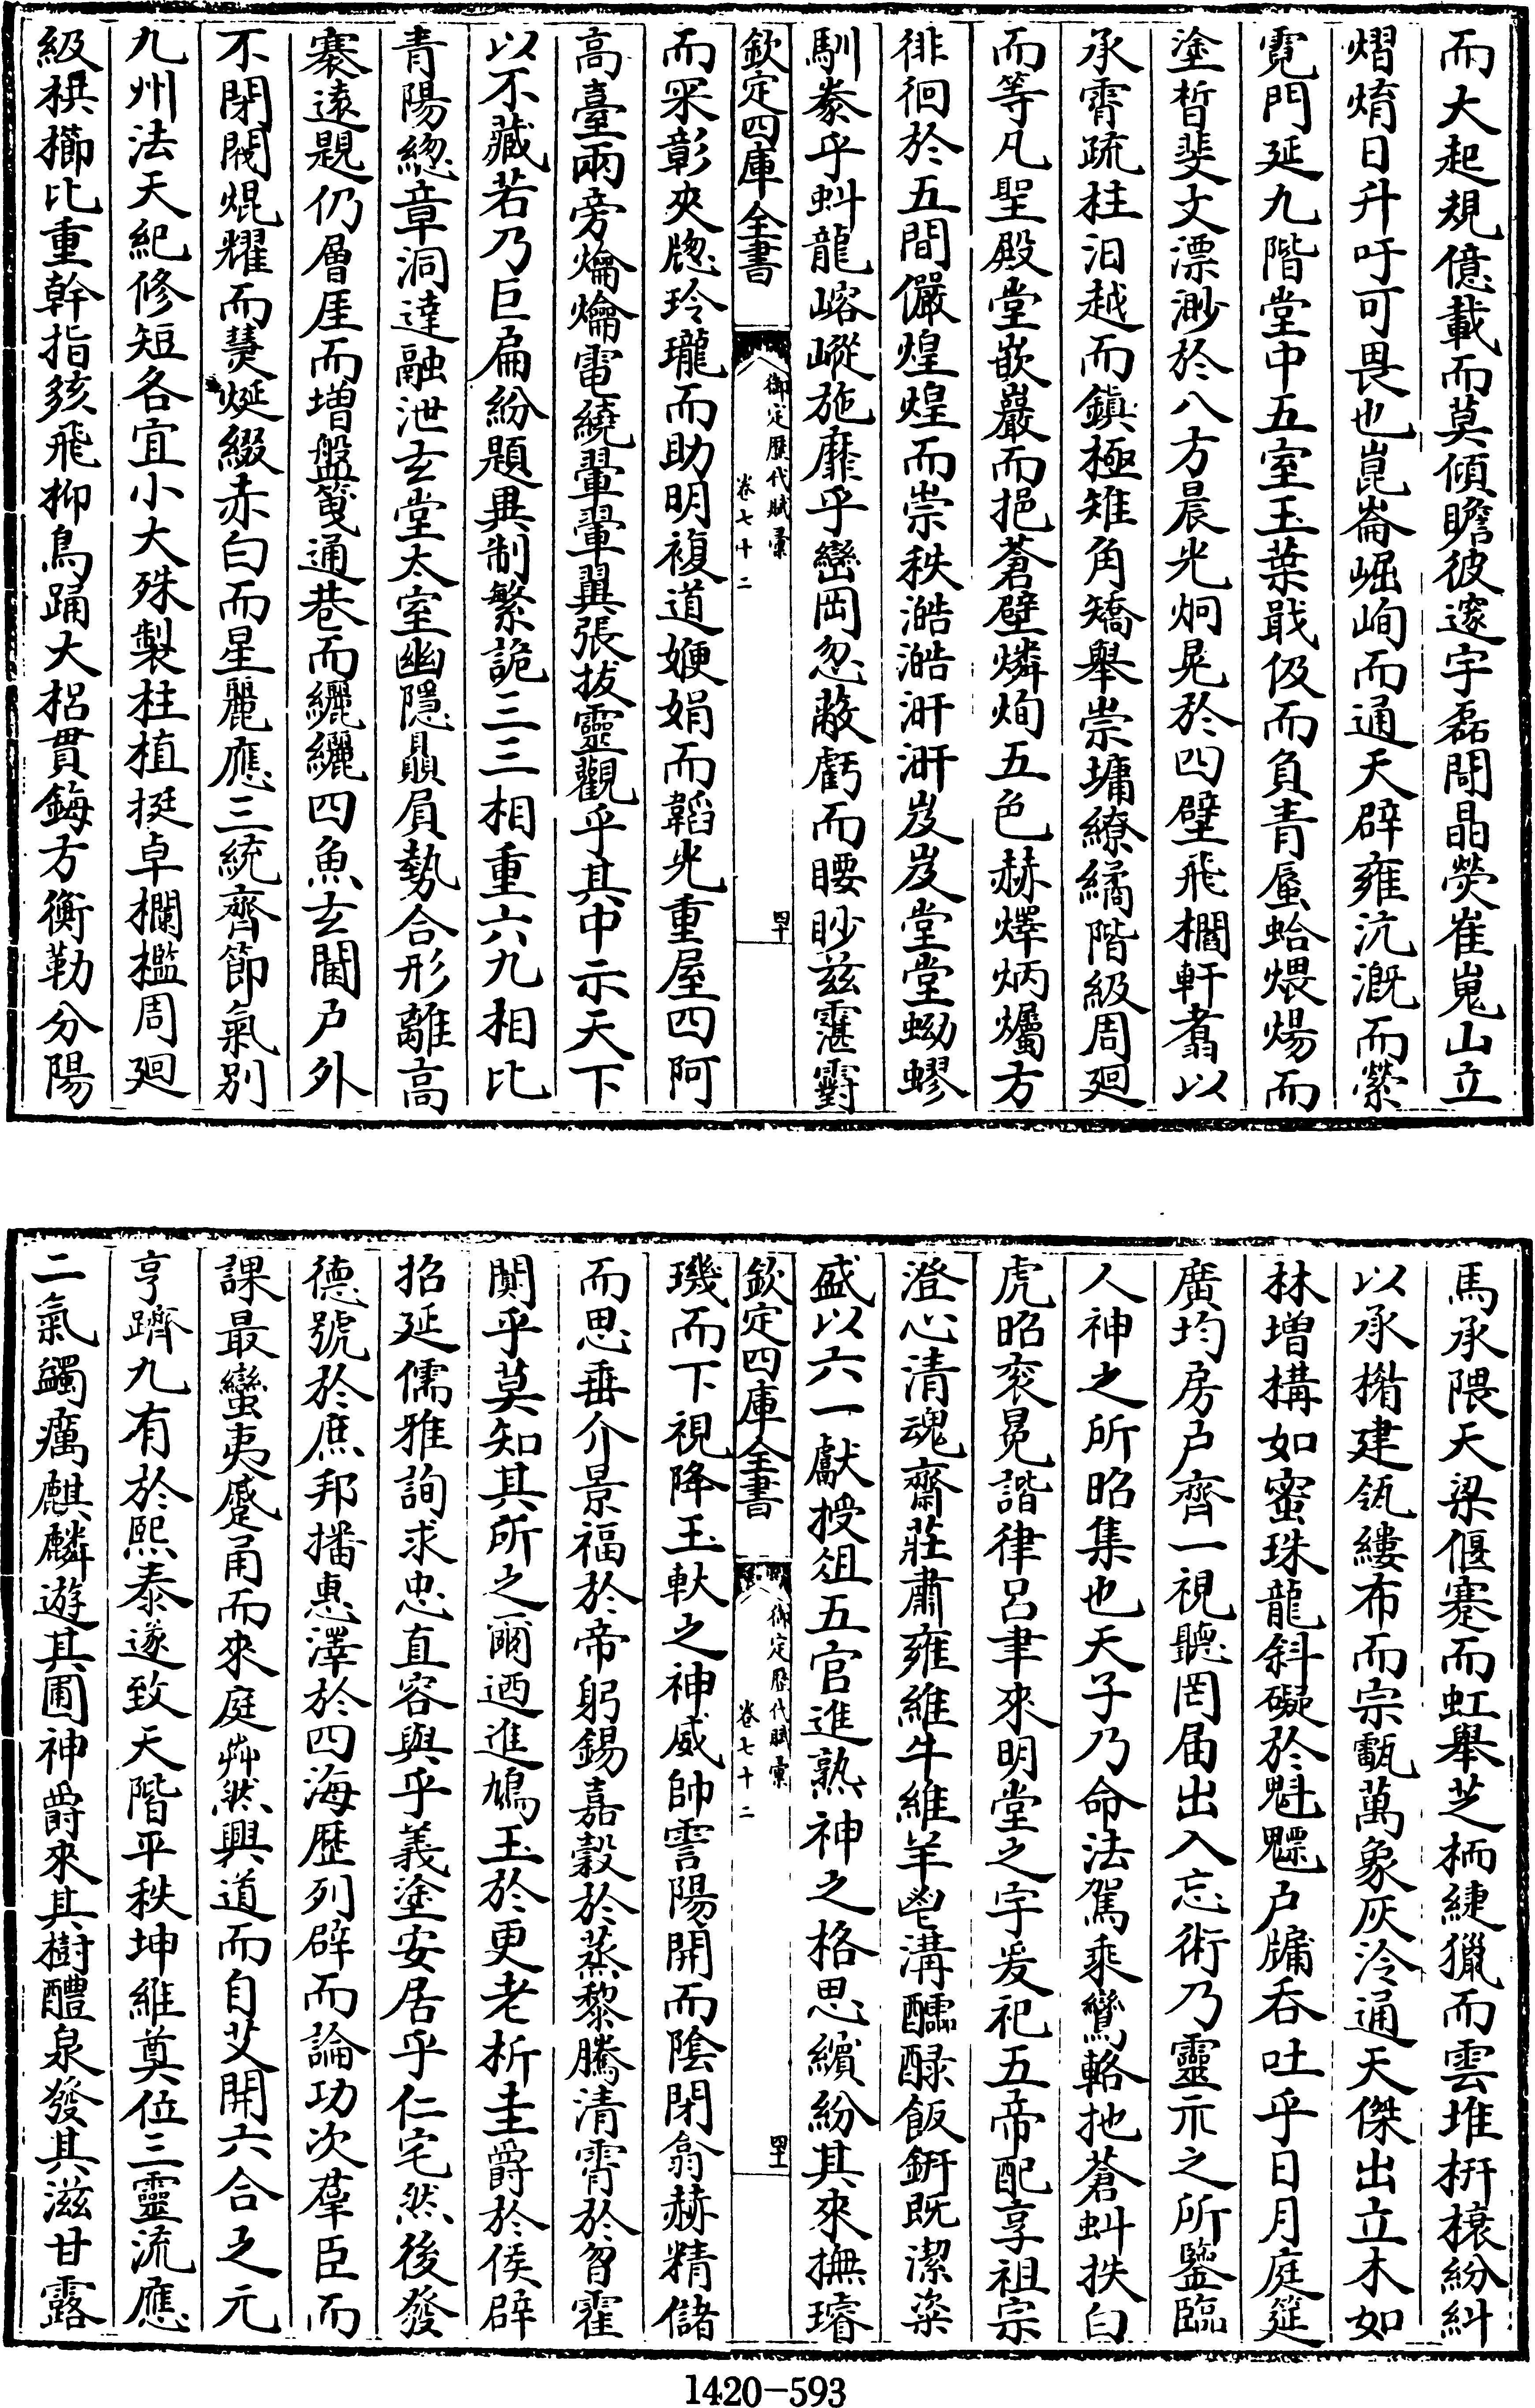 而大起規億載而莫傾瞻彼邃宇磊閜晶熒崔嵬山立
熠焴日升吁可畏也崑崙崛峋而通天辟雍沆漑而縈
霓門延九階堂中五室玉葉戢伋而負青蜃蛤煨煬而
塗晳斐文漂渺於八方晨光炯晃於四壁飛櫩軒翥以
承霄疏柱汩越而鎮極雉角矯舉崇墉繚繘階級周廻
而等凡聖殿堂嵌巖而挹蒼壁燐炯五色赫燡炳爥方
徘徊於五間儼煌煌而崇秩澔澔涆涆岌岌堂堂蚴蟉
馴豢乎虯龍嵱嵷施靡乎巒岡忽敝虧而瞹眇兹霮䨴
欽定四庫全書
御定歷代賦彙
卷七十二
四十
而罙彰夾牕玲瓏而助明複道㛹娟而韜光重屋四阿
高臺兩旁爚爚電繞翬翬翼張拔靈觀乎其中示天下
以不藏若乃巨扁紛題異制繁詭三三相重六九相比
青陽緫章洞達融泄玄堂太室幽隱贔屓勢合形離高
褰遠題仍層厓而增盤䆫通巷而纚纚四魚玄闔户外
不閉闥焜耀而㷸烻綴赤白而星麗應三統齊節氣別
九州法天紀修短各宜小大殊製柱植挺卓欄檻周廻
級栱櫛比重幹指㺊飛抑鳥踊大梠貫鋂方衡勒分陽
馬承隈天梁偃蹇而虹舉芝栭緁獵而雲堆枅榱紛糾
以承揩建瓴縷布而宗甎萬象灰冷通天傑出立木如
林增構如蜜珠龍斜礙於魁䰢户牖呑吐乎日月庭筵
廣均房户齊一視聽罔届出入忘術乃靈示之所鑒臨
人神之所昭集也天子乃命法駕乘鸞輅拖蒼虯抶白
虎昭衮冕諧律呂聿來明堂之宇爰祀五帝配享祖宗
澄心清魂齋莊肅雍維牛維羊鬯溝醽醁飯鉶既潔粢
盛以六一獻授俎五官進熟神之格思繽紛其來撫璿
欽定四庫全書
御定歷代賦彙
卷七十二
四十一
璣而下視降玉軑之神威帥雲陽開而陰閉翕赫精儲
而思垂介景福於帝躬錫嘉穀於蒸黎騰清霄於曶霍
闃乎莫知其所之爾廼進鳩玉於更老析圭爵於侯辟
招延儒雅詢求忠直容與乎義塗安居乎仁宅然後發
德號於庶邦播惠澤於四海歷列辟而論功次羣臣而
課最蠻夷蹙甬而來庭艸然興道而自艾開六合之元
亨躋九有於熙泰遂致天階平秩坤維奠位三靈流應
二氣蠲癘麒麟遊其圃神爵來其樹醴泉發其滋甘露
1420-593